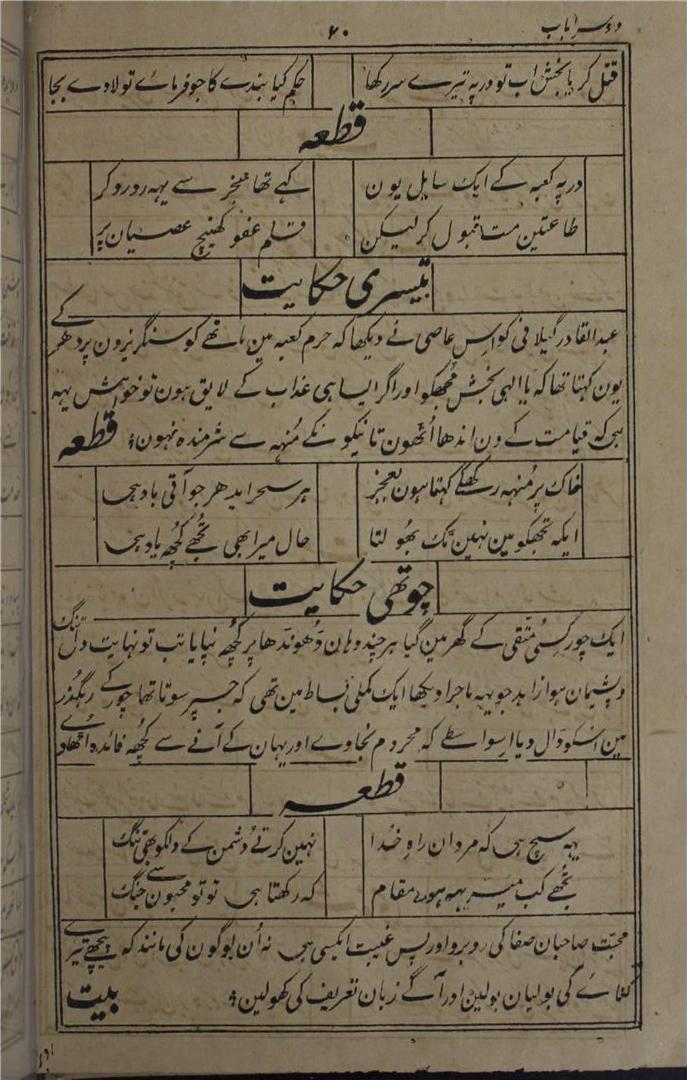 دوسرا باب
۶۰
قتل کر یا بخش اب تو در پہ تیرے سر رکھا حکم کیا بندے کا جو فرمائے تو لاوے بجا
قطعہ
در پہ کعبہ کے ایک سایل یون کہے تھا عجز سے یہہ رو رو کر
طاعتین مت قبول کر لیکن قلم عفو کھینچ عصیان پر
تیسری حکایت
عبدالقادر گیلانی کو اس عاصی نے دیکھا کہ حرم کعبہ مین ماتھے کو سنگریزون پر دھر کے
یون کہتا تھا کہ یا الٰہی بخش مجھکو اور اگر ایسا ہی عذاب کے لایق ہون تو خواہش یہہ
ہی کہ قیامت کے دن اندھا اُٹھون تا نیکونکے مُنہہ سے شرمندہ نہون؛ قطعہ
خاک پر مُنہہ رکھکے کہتا ہون بعجز ہر سحر ایدھر جو آتی باد ہی
ایکہ تجھکو مین نہین تک بھُولتا حال میرا بھی تجھے کُچھ یاد ہی
چوتھی حکایت
ایک چور کسی متقی کے گھر مین گیا ہر چند وہان ڈھونڈھا پر کُچھ نپایا تب تو نہایت دل تنگ
و پشیمان ہوا زاہد جو یہہ ماجرا دیکھا ایک کملی بساط مین تھی کہ جسپر سوتا تھا چور کے رہگذر
مین اسکو ڈال دیا اسواسطے کہ محروم نجاوے اور یہان کے آنے سے کُچھ فائدہ اُٹھاوے
قطعہ
یہہ سچ ہی کہ مردان راہ خدا نہین کرتے دُشمن کے دلکو بھی تنگ
تُجھے کب میسر یہہ ہووے مقام کہ رکھتا ہی تو تو محبون سے جنگ
محبت صاحبان صفا کی روبرو اور پس غیبت ایکسی ہی نہ اُن لوگون کی مانند کہ پیچھے تیرے
گلائے کی بولیان بولین اور آگے زبان تعریف کی کھولین؛ بیت